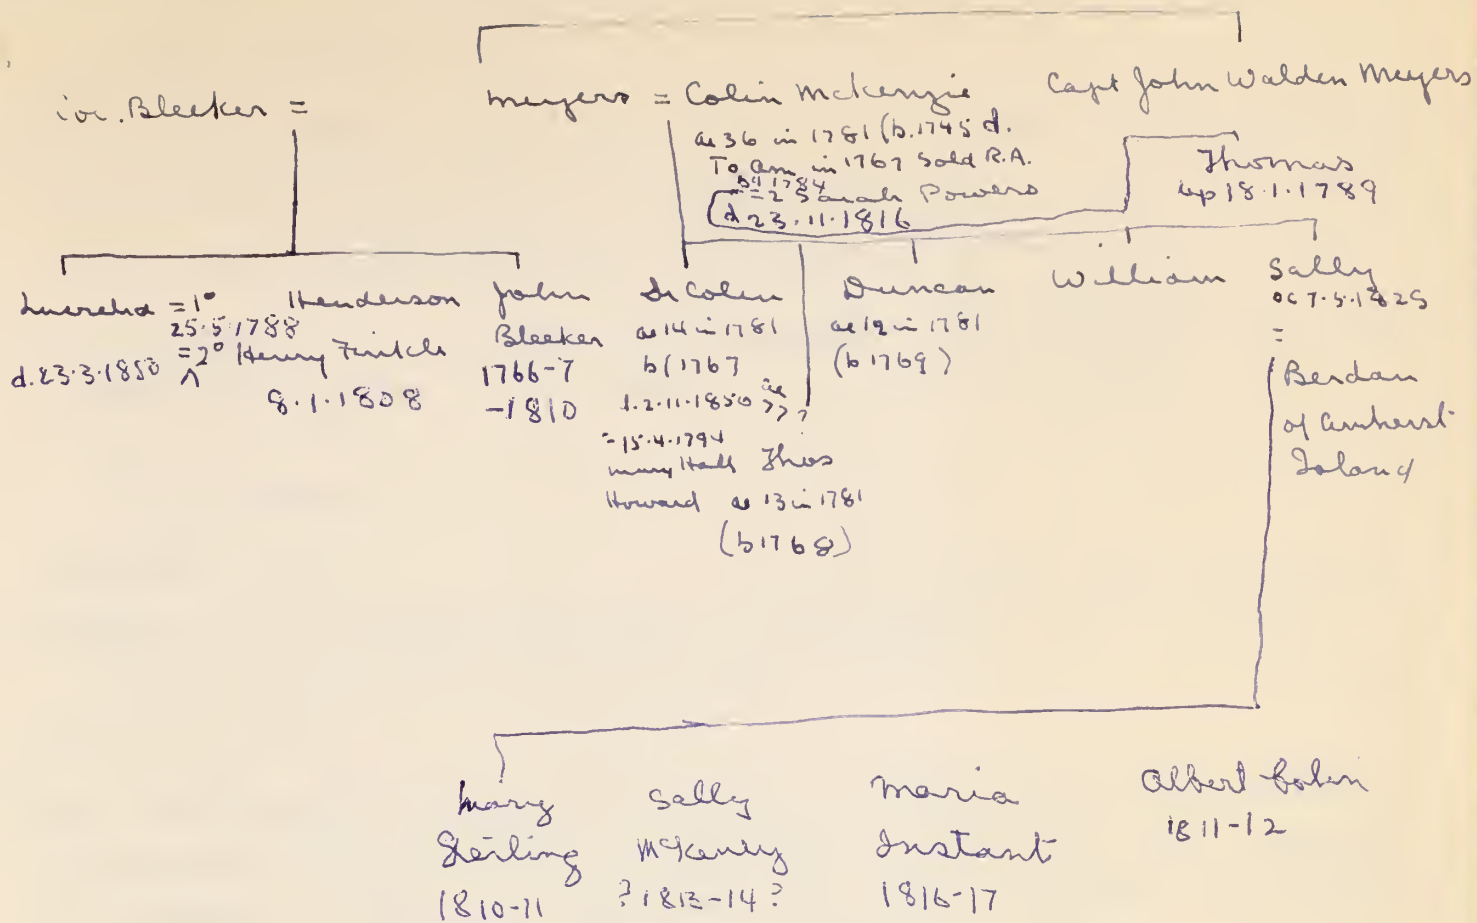 Bleeker =
Meyers = Colin McKenzie
Capt John Walden Meyers
ae 36 in 1781 (b. 1745 d.
To Am in 1767 Sold R.A.
by 1784
= 2 Sarah Powers
d 23.11.1816
Thomas
bp 18.1.1789
Lucretia = 1° Henderson
25.5.1788
d. 23.3.1850 = 2° Henry Finkle
8.1.1808
John
Bleeker
1766-7
-1810
Colin
ae 14 in 1781
b (1767
d. 2.11.1850 ae
77?
= 15.4.1794
Mary Hall
Howard
Thos
ae 13 in 1781
(b 1768)
Duncan
ae 12 in 1781
(b 1769)
William
Sally
=
Berdan
of Amherst
Island
Mary
Sterling
1810-11
Sally
McKenzy
? 1813-14 ?
Maria
Instant
1816-17
Albert Colin
1811-12